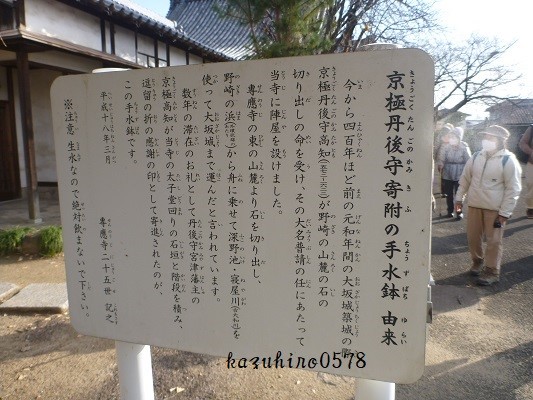 京極丹後守寄附の手水鉢 由来
今から四百年ほど前の元和年間の大坂城築城の際、
京極丹後守高知が野崎の山麓の石の
切り出しの命を受け、その大名普請の任にあたって
当寺に陣屋を設けました。
専應寺の東の山麓より石を切り出し、
野崎の浜から舟に乗せて深野池・寝屋川を
使って大坂城まで運んだと言われています。
数年の滞在のお礼として丹後守宮津藩主の
京極高知が当寺の太子堂回りの石垣と階段を積み、
逗留の折の感謝の印として寄進されたのが、
この手水鉢です。
平成十八年三月
専應寺二十五世 記之
※注意 生水なので絶対飲まないで下さい。
kazuhiro0578